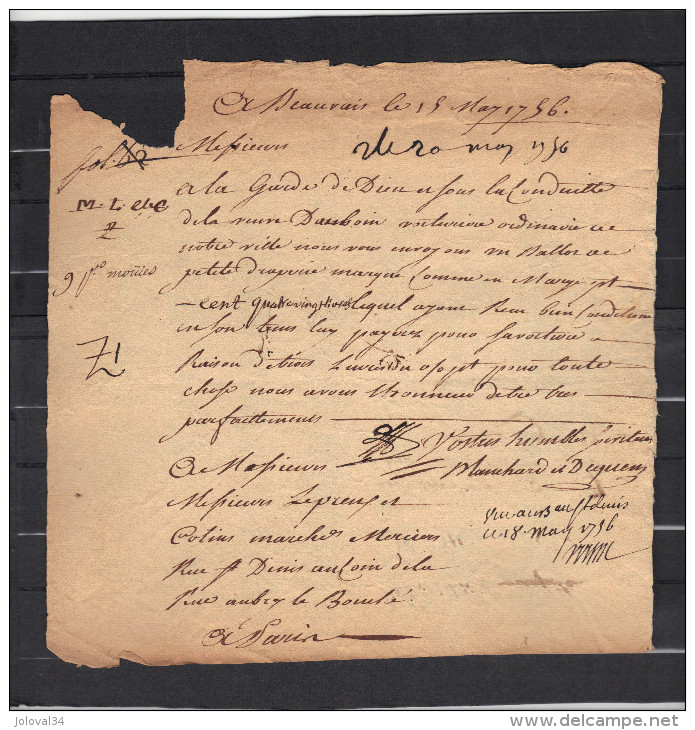 A Beauvais le 15 May 1756.
fol. 62
Messieurs
le 20 may 1756
M. L et C
2
A la Garde de Dieu et sous la Conduitte
de la veuve Dauboin voituriere ordinaire de
notre ville nous vous envoyons un Ballot de
petite draperie marqué Comme en Marge pt
cent quatrevingt livres lequel ayant Receu bien Conditionné
en son tems luy payerez pour sa voiture a
Raison de trois Livres du o/o pt pour toutte
chose nous avons Lhonneur detre tres
parfaittement
9 moüies
71
Vos tres humbles serviteurs
Blanchard et Dequens
A Messieurs
Messieurs Lepreux et
Cotins marchds Merciers
Rue St Denis au Coin de la
Rue aubry le Bouché
A Paris
St denis
ce 18 may 1756
joloval34
www.delcampe.net